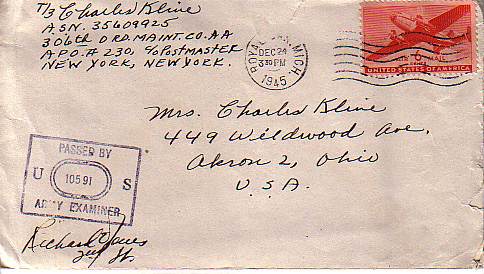 T/3 Charles Kline
A.S.N. 35609925
306th ORD.MAINT.CO.AA
A.P.O. # 230, c/o POSTMASTER
NEW YORK, NEW YORK.
ROYAL OAK, MICH.
DEC 24
3 30 PM
1945
6
AIR MAIL
UNITED STATES OF AMERICA
Mrs. Charles Kline
449 Wildwood Ave.
Akron 2, Ohio
U.S.A.
PASSED BY
U 10591 S
ARMY EXAMINER
Richard